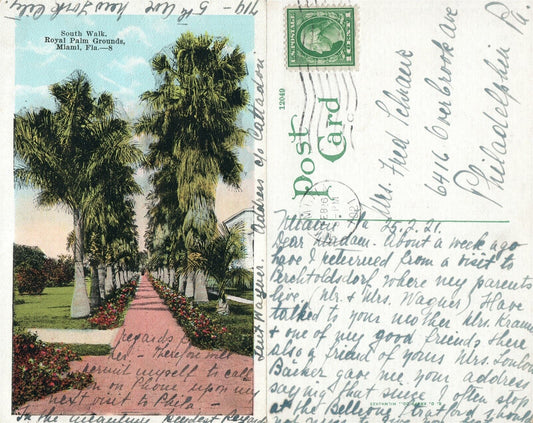 719 - 5th Ave New York City.
South Walk,
Royal Palm Grounds,
Miami, Fla.—8
Address c/o Calladon
sent Wagner.
regards f
her - Therefore will
permit myself to call
on on Phone upon my
next visit to Phila -
In the meantime kindest Regards
U.S. POSTAGE
1 CENT 1
12049
Post
Card
Mrs. Fred Schwarz
6416 Overbrook Ave
Philadelphia Pa.
Miami Fla 25.2.21.
Dear Madam. About a week ago
have I returned from a visit to
Perchtoldsdorf where my parents
live, Mr. & Mrs. Wagner. Have
talked to your mother Mrs. Kramer
& one of my good friends there
also a friend of yours Mrs.
Backer gave me your address
saying that since I often stop
at the Bellevue Stratford should